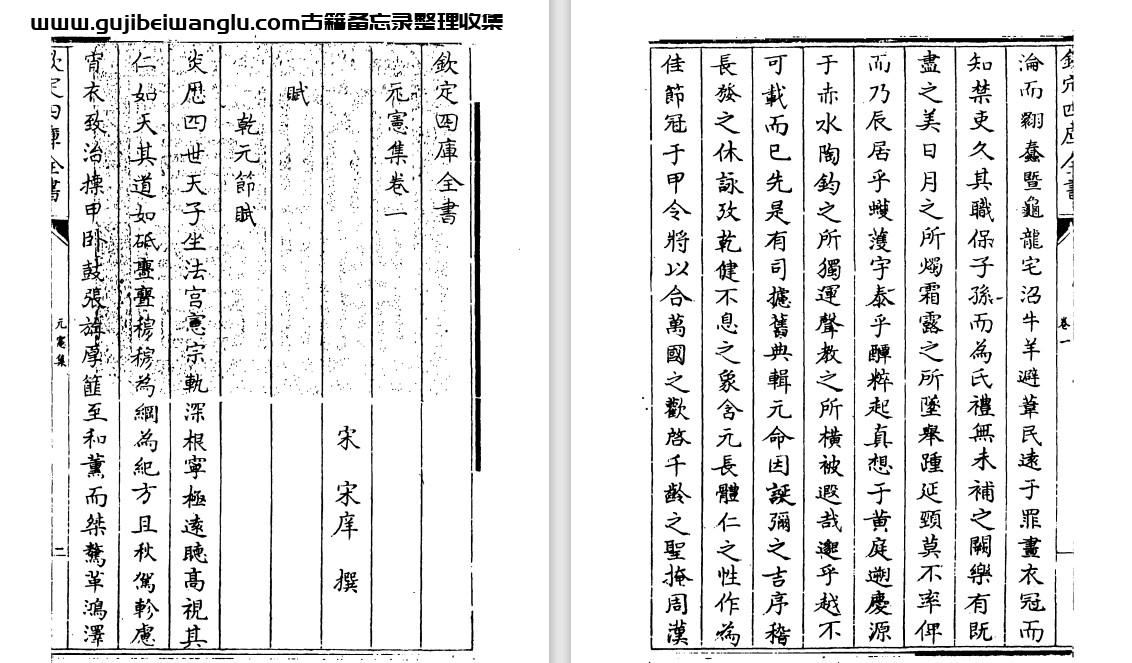 www.gujibeiwanglu.com古籍备忘录整理收集
欽定四庫全書
元憲集卷一
宋 宋庠 撰
賦
乾元節賦
炎厯四世天子坐法宫憲宗軌深根寧極遠聴髙視其
仁如天其道如砥亹亹穆穆為綱為紀方且秋駕軫慮
宵衣致治櫜甲卧鼓張旃厚篚至和薫而桀驁革鴻澤
欽定四庫全書
元憲集
二
欽定四庫全書
卷一
淪而翾蠢暨龜龍宅沼牛羊避葦民遠于罪畫衣冠而
知禁吏久其職保子孫而為氏禮無未補之闕樂有既
盡之美日月之所燭霜露之所墜舉踵延頸莫不率俾
而乃辰居乎蠖濩宇泰乎醇粹起真想于黄庭遡慶源
于赤水陶鈞之所獨運聲教之所横被遐哉邈乎越不
可載而已先是有司據舊典輯元命因誕彌之吉序稽
長發之休詠攷乾健不息之象含元長體仁之性作為
佳節冠于甲令將以合萬國之歡啓千齡之聖掩周漢